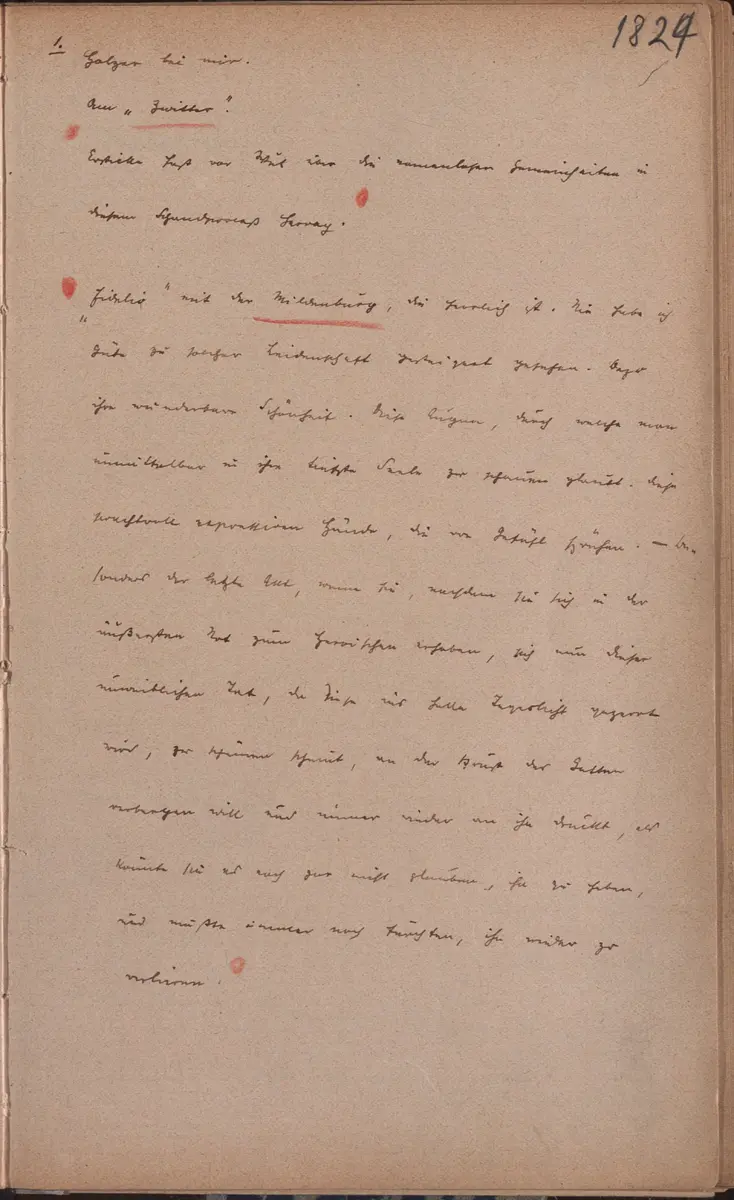 1824
1. Holzer bei mir.
Am „Zwitter".
Ersticke fast vor Wut über die namenlosen Gemeinheiten in
diesem Schandprocess Hervay.
„Fidelio" mit der Mildenburg, die herrlich ist. Nie habe ich
Güte zu solcher Leidenschaft gesteigert gesehen. Dazu
ihre wunderbare Schönheit. Diese Augen, durch welche man
unmittelbar in ihre tiefste Seele zu schauen glaubt. Diese
prachtvoll expressiven Hände, die von Gefühl sprühen. — Be-
sonders der letzte Akt, wenn sie, nachdem sie sich in der
äußersten Not zum Heroischen erhoben, sich nun dieser
unweiblichen Tat, da diese ins helle Tageslicht gezerrt
wird, zu schämen scheint, an der Brust des Gatten
verbergen will und immer wieder an ihn drückt, als
könnte sie es noch gar nicht glauben, ihn zu haben,
und müßte immer noch fürchten, ihn wieder zu
verlieren.